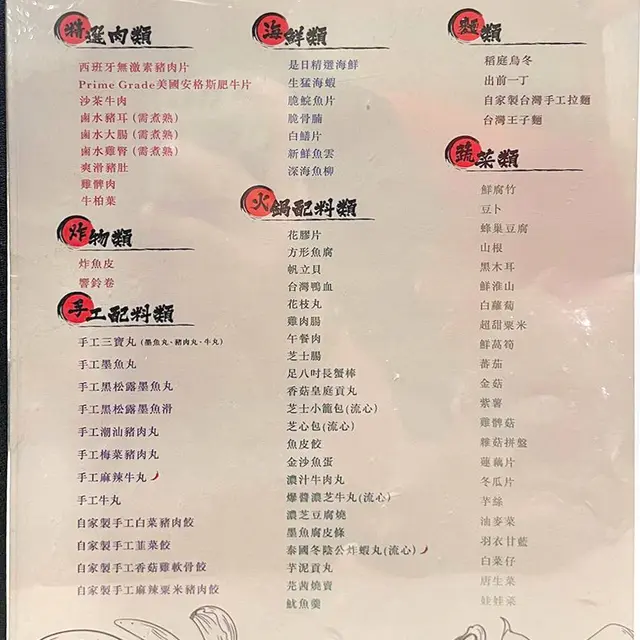 特選肉類
西班牙無激素豬肉片
Prime Grade美國安格斯肥牛片
沙茶牛肉
鹵水豬耳(需煮熟)
鹵水大腸(需煮熟)
鹵水雞腎(需煮熟)
爽滑豬肚
雞髀肉
牛柏葉
炸物類
炸魚皮
響鈴卷
手工配料類
手工三寶丸(墨魚丸、豬肉丸、牛丸)
手工墨魚丸
手工黑松露墨魚丸
手工黑松露墨魚滑
手工潮汕豬肉丸
手工梅菜豬肉丸
手工麻辣牛丸
手工牛丸
自家製手工白菜豬肉餃
自家製手工韮菜餃
自家製手工香菇雞軟骨餃
自家製手工麻辣粟米豬肉餃
海鮮類
是日精選海鮮
生猛海蝦
脆鯇魚片
脆骨腩
白鱔片
新鮮魚雲
深海魚柳
火鍋配料類
花膠片
方形魚腐
帆立貝
台灣鴨血
花枝丸
雞肉腸
午餐肉
芝士腸
足八吋長蟹棒
香菇皇庭貢丸
芝士小籠包(流心)
芝心包(流心)
魚皮餃
金沙魚蛋
濃汁牛肉丸
爆醬濃芝牛丸(流心)
濃芝豆腐燒
墨魚腐皮條
泰國冬陰公炸蝦丸(流心)
芋泥貢丸
芫茜燒賣
魷魚羹
麵類
稻庭烏冬
出前一丁
自家製台灣手工拉麵
台灣王子麵
蔬菜類
鮮腐竹
豆卜
蜂巢豆腐
山根
黑木耳
鮮淮山
白蘿蔔
超甜粟米
鮮萵筍
蕃茄
金菇
紫薯
雞髀菇
雜菇拼盤
蓮藕片
冬瓜片
芋絲
油麥菜
羽衣甘藍
白菜仔
唐生菜
娃娃菜